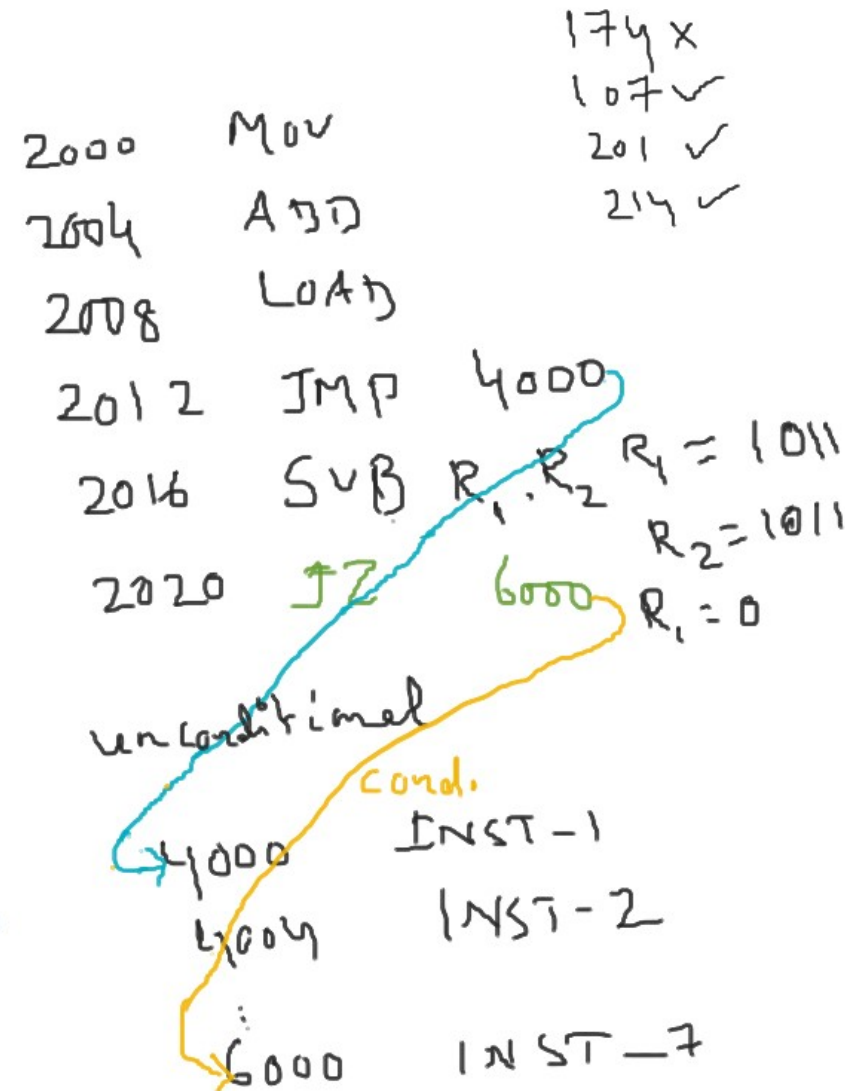 174 x
107 ✓
201 ✓
214 ✓
2000 MOV
2004 ADD
2008 LOAD
2012 JMP 4000
2016 SUB R1, R2 R1 = 1011
R2 = 1011
2020 JZ 6000 R1 = 0
unconditional
cond.
4000 INST-1
4004 INST-2
:
6000 INST-7